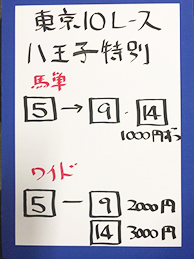 東京10レース
八王子特別
馬単
5 → 9 . 14
1000円づつ
ワイド
5 ー 9 2000円
14 3000円